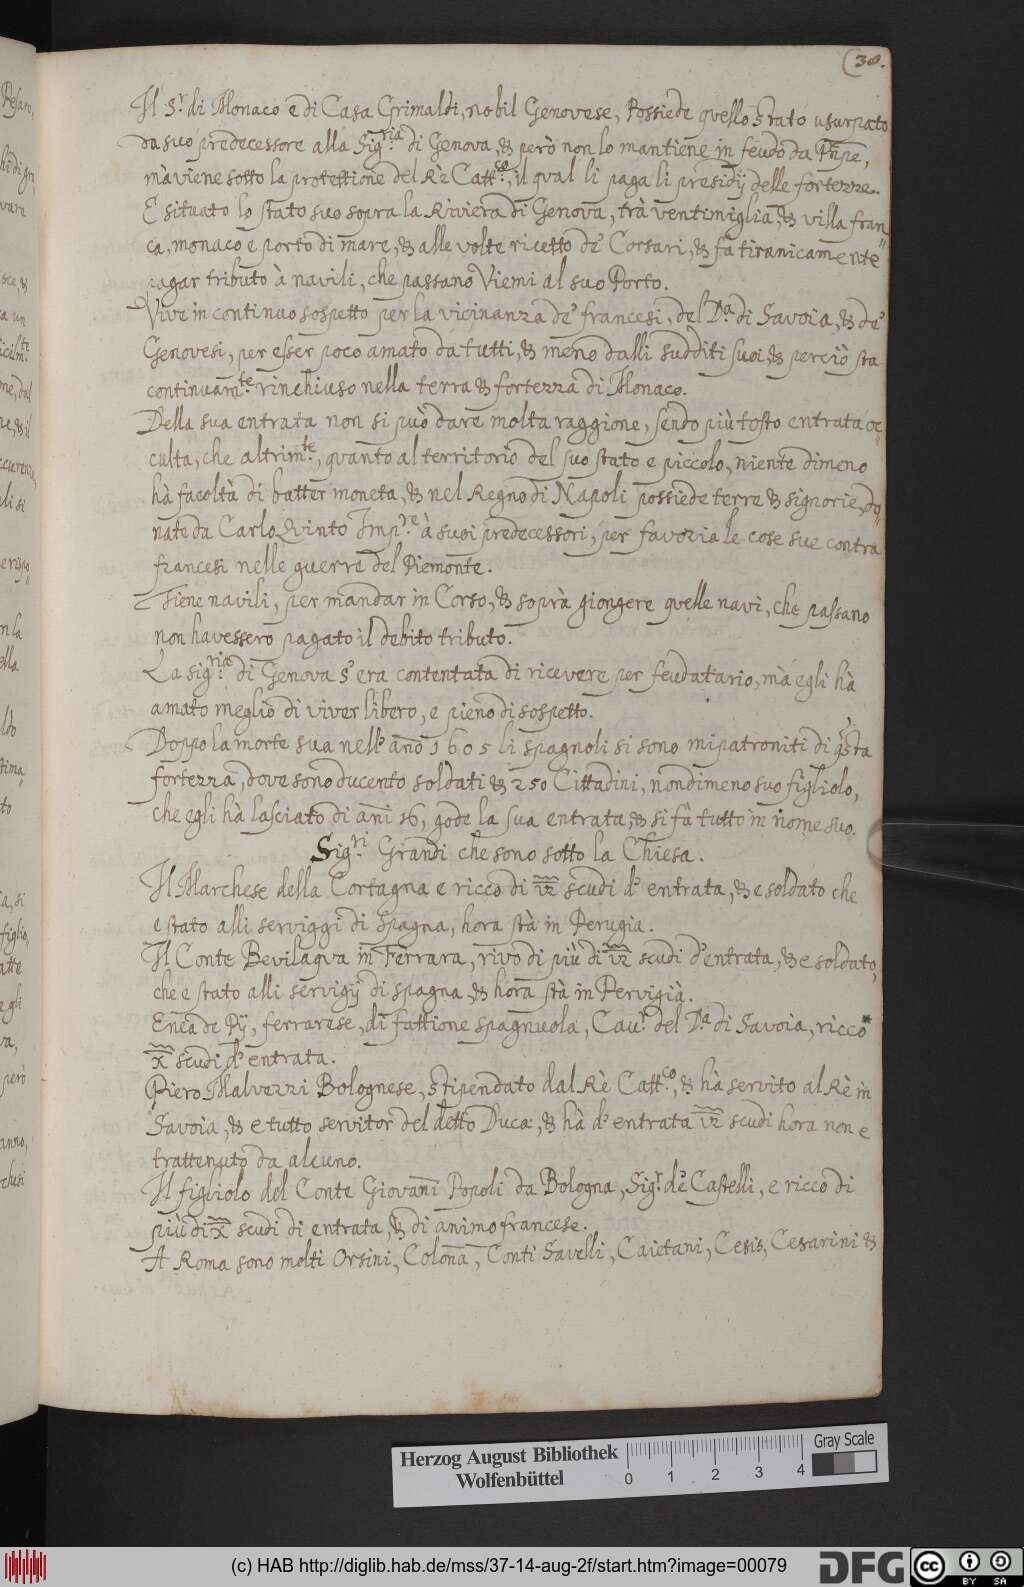 (38.
Il S.r di Monaco e di Casa Grimaldi, nobil Genovese, Possiede quello stato usurpato
da suo predecessore alla Sig.ria di Genova, & però non lo mantiene in feudo da Pñpe,
mà viene sotto la protettione del Rè Catt.co, il qual li paga li presidij delle fortezze.
E situato lo stato suo sopra la Riviera di Genova, trà ventimiglia, & villa fran=
ca, monaco e porto di mare, & alle volte ricetto de' Corsari, & fà tiranicamente
pagar tributo à navili, che passano Viemi al suo Porto.
Vive in continuo sospetto per la vicinanza de' francesi, del D.a di Savoia, & de'
Genovesi, per esser poco amato da tutti, & meno dalli sudditi suoi, & perciò sta
continuam.te rinchiuso nella terra & fortezza di Monaco.
Della sua entrata non si può dare molta raggione, sendo più tosto entrata oc=
culta, che altrim.te, quanto al territorio del suo stato e piccolo, niente dimeno
hà facoltà di batter moneta, & nel Regno di Napoli possiede terre & signorie, do=
nate da Carlo Quinto Imp.re à suoi predecessori, per favoria le cose sue contra
francesi nelle guerre del Piemonte.
Tiene navili, per mandar in Corso, & soprà giongere quelle navi, che passano
non havessero pagato il debito tributo.
La sig.ria di Genova s' era contentata di ricevere per feudatario, mà egli hà
amato meglio di viver libero, e pieno di sospetto.
Doppo la morte sua nell' año 1605 li spagnoli si sono mipatroniti di q̃sta
fortezza, dove sono ducento soldati & 250 Cittadini, nondimeno suo figliolo,
che egli hà lasciato di añi 16, gode la sua entrata, & si fà tutto in nome suo.
Sig.ri Grandi che sono sotto la Chiesa.
Il Marchese della Cortagna e ricco di scudi d' entrata, & e soldato che
e stato alli serviggi di Spagna, hora stà in Perugia.
Il Conte Bevilaqua in Ferrara, rivo di più di scudi d' entrata, & e soldato,
che e stato alli servigij di spagna & hora stà in Pervigià.
Enea de Pij, ferrarese, di fattione spagnuola, Cau.r del D.a di Savoia, ricco
x scudi d' entrata.
Piero Malvezzi Bolognese, stipendato dal Rè Catt.co, & hà servito al Rè in
Savoia, & e tutto servitor del detto Duca, & hà d' entrata scudi hora non e
trattenuto da alcuno.
Il figliolo del Conte Giovañi Popoli da Bologna, Sig.r de' Castelli, e ricco di
più di x scudi di entrata, & di animo francese.
A Roma sono molti Orsini, Coloña, Conti Savelli, Caietani, Cesis, Cesarini &
Herzog August Bibliothek
Wolfenbüttel
0 1 2 3 4
Gray Scale
(c) HAB http://diglib.hab.de/mss/37-14-aug-2f/start.htm?image=00079
DFG
cc BY SA